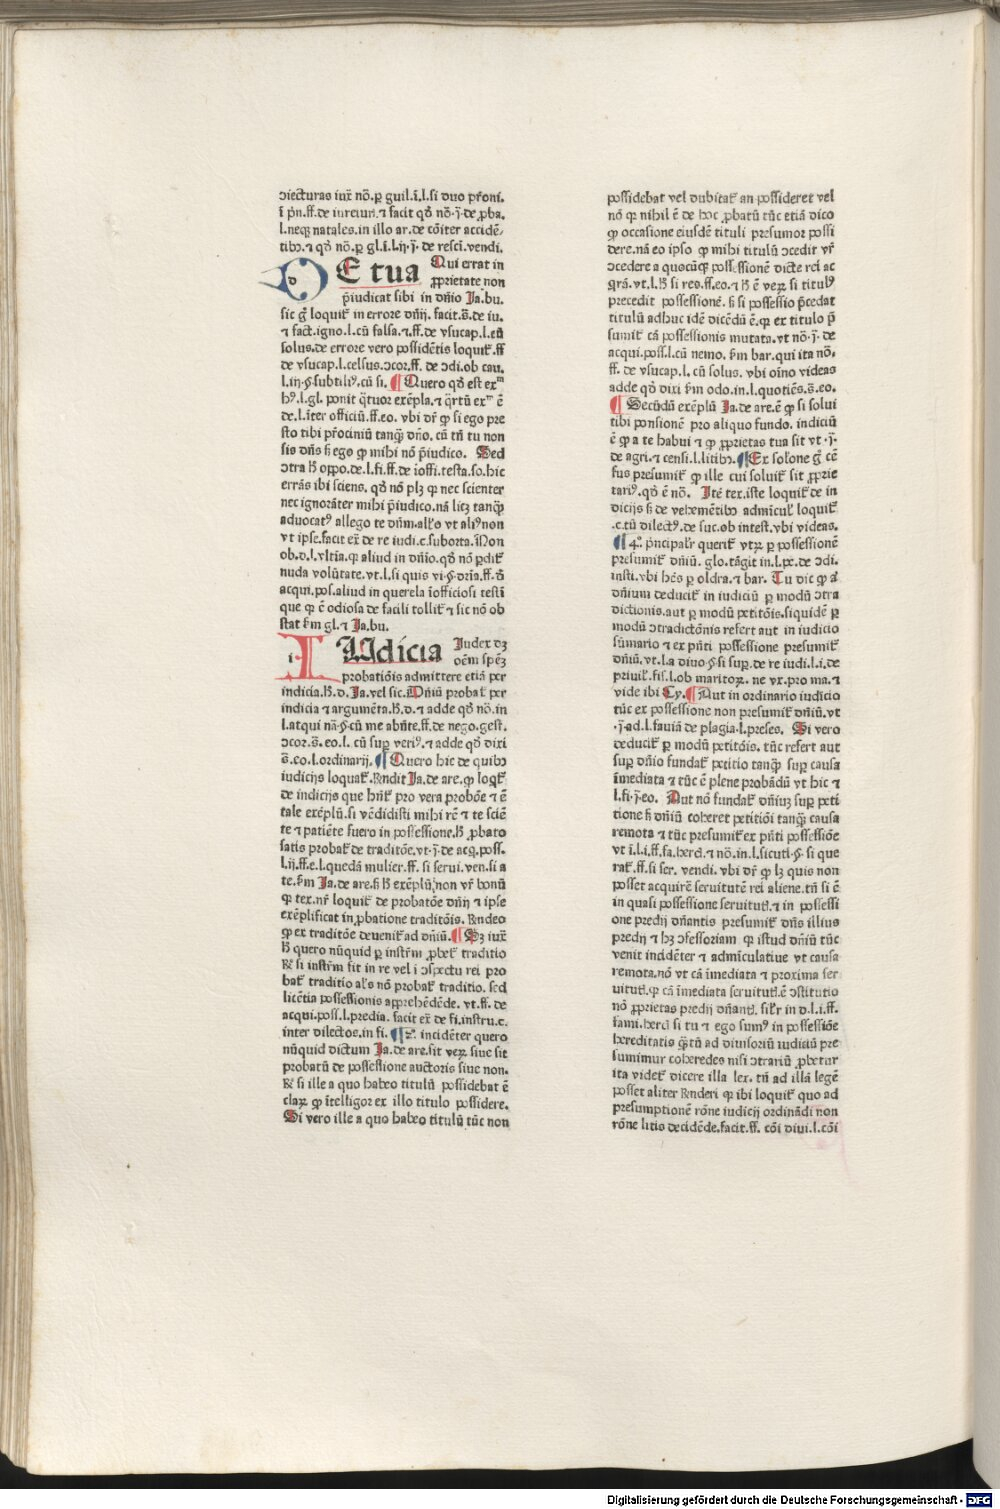 ɔiecturas iux̄ nō.ꝑ guil.ī.l.si duo pr̄oni.
ī pn̄.ff.de iureiur.⁊ facit qḋ nō.ī.de ꝓba.
l.neqꝫ natales.in illo ar.de cōiter accidē/
tibꝰ.⁊ qḋ nō.ꝑ gl.ī.l.ij.ī.de resci.vendi.
DE tua Qui errat in
ꝓprietate non
p̄iudicat sibi in dn̄io Ja.bu.
sic gͦ loquiť in errore dn̄ij. facit.s̄.de iu.
⁊ fact.igno.l.cū falsa.⁊.ff.de vsucap.l.eū
solus.de errore vero possidētis loquiť.ff
de vsucap.l.celsus.ɔcor.ff.de ɔdi.ob cau.
l.iij.§ subtiliꝰ.cū si. ¶ Quero qḋ est exᵐ
hꝰ.l.gl. ponit q̄tuor exēpla.⁊ q̄rtū exᵐ ē
de.l.īter officiū.ff.eo. vbi dr̄ ꝙ si ego pre
sto tibi pr̄ociniū tanqꝫ dn̄o. cū tn̄ tu non
sis dn̄s ẜ ego ꝙ mihi nō p̄iudico. Sed
ɔtra ħ oppo.de.l.fi.ff.de ioffi.testa.so.hic
errās ibi sciens. qḋ nō plꝫ ꝙ nec scienter
nec ignorāter mihi p̄iudico.nā licꝫ tanqꝫ
aduocatꝰ allego te dn̄m.alr̄s vt aliꝰ non
vt ipse.facit ex̄ de re iudi.c.suborta.Non
ob.d.l.vltīa.ꝙ aliud in dn̄io.qḋ nō ꝑdiť
nuda volūtate.vt.l.si quis vi.§ dr̄ia.ff.ḋ
acqui.pos.aliud in querela īofficiosi testī
que ꝙ ē odiosa de facili tolliť ⁊ sic nō ob
stat ẜm gl.⁊ Ja.bu.
INdicia Judex dꝫ
oēm spēꝫ
probatiōis admittere etiā per
indicia.ħ.d. Ja.vel sic. Dn̄iū probať per
indicia ⁊ argumēta.ħ.d.⁊ adde qḋ nō.in
l.atqui nā.§ cū me abn̄te.ff.de nego.gest.
ɔcor.s̄.eo.l. cū suꝑ veriꝰ.⁊ adde qḋ dixi
s̄.eo.l.ordinarij. ¶ Quero hic de quibꝰ
iudicijs loquať. Rn̄dit Ja.de are.ꝙ loqť
de indicijs que hn̄t pro vera probōe ⁊ ē
tale exēplū.si vēdidisti mihi rē ⁊ te sciē
te ⁊ patiēte fuero in possessione.ħ ꝓbato
satis probať de traditōe.vt.ī.de acq̄.poss.
l.ij.ff.e.l.quedā mulier.ff. si serui.ven.si a
te.ẜm Ja.de are.ẜ ħ exēplū non vr̄ bonū
ꝙ tex.nr̄ loquiť de probatōe dn̄ij ⁊ ipse
exēplificat in ꝓbatione traditōis. Rn̄deo
ꝙ ex traditōe deueniť ad dn̄iū. ¶ Sꝫ iux̄
ħ quero nūquid ꝑ instr̄m ꝓbeť traditio
R̄ si instr̄m sit in re vel ī ɔspectu rei pro
bať traditio al̄s nō probať traditio. sed
licētia possessionis apprehēdēde. vt.ff. de
acqui.poss.l.predia. facit ex̄ de fi.instru.c.
inter dilectos.in fi. ¶ 2°. incidēter quero
nūquid dictum Ja.de are.sit veꝝ siue sit
probatū de possessione auctoris siue non.
R̄ si ille a quo habeo titulū possidebat ē
claꝝ ꝙ ītelligor ex illo titulo possidere.
Si vero ille a quo habeo titulū tūc non
possidebat vel dubitať an possideret vel
nō ꝙ nihil ē de hoc ꝓbatū tūc etiā dico
ꝙ occasione eiusdē tituli presumor possi
dere.nā eo ipso ꝙ mihi titulū ɔcedit vr̄
ɔcedere a quocūqꝫ possessionē dicte rei ac
q̄rā.vt.l.ħ si res.ff.eo.⁊ ħ ē veꝝ si titulꝰ
precedit possessionē. ẜ si possessio p̄cedat
titulū adhuc idē dicēdū ē.ꝙ ex titulo p̄
sumiť cā possessionis mutata.vt nō.ī.de
acqui.poss.l.cū nemo. ẜm bar.qui ita nō.
ff.de vsucap.l. cū solus. vbi oīno videas
adde qḋ dixi ẜm odo.in.l.quotiēs.s̄.eo.
¶ Secūdū exēplū Ja.de are.ē ꝙ si solui
tibi pensionē pro aliquo fundo. indiciū
ē ꝙ a te habui ⁊ ꝙ ꝓprietas tua sit vt.ī.
de agri.⁊ censi.l.litibꝰ. ¶ Ex solone gͦ cē
sus presumiť ꝙ ille cui soluiť sit ꝓprie
tariꝰ.qḋ ē nō. Itē tex.iste loquiť de in
dicijs ẜ de vehemētibꝰ admicul' loquiť
.c.tū dilectꝰ.de suc.ob intest.vbi videas.
¶ 4°. pn̄cipalr̄ queriť vtꝝ ꝑ possessionē
presumiť dn̄iū. glo.tāgit in.l.pe.de ɔdi.
insti.vbi hēs ꝑ oldra.⁊ bar. Tu dic ꝙ aͭ
dn̄ium deduciť in iudiciū ꝑ modū ɔtra
dictionis.aut ꝑ modū petitōis.siquidē ꝑ
modū ɔtradictōnis refert aut in iudicio
sūmario ⁊ ex pn̄ti possessione presumiť
dn̄iū.vt.l.a diuo.§ si suꝑ.de re iudi.l.i.de
priuil'.fis.l.ob maritoꝝ. ne vx.pro ma.⁊
vide ibi Cy. ¶ Aut in ordinario iudicio
tūc ex possessione non presumiť dn̄iū.vt
.ī.ad.l.fauiā de plagia.l.preses. Si vero
deduciť ꝑ modū petitōis. tūc refert aut
suꝑ dn̄io fundať petitio tanqꝫ suꝑ causa
īmediata ⁊ tūc ē plene probādū vt hic ⁊
l.fi.ī.eo. Aut nō fundať dn̄iuꝫ suꝑ peti
tione ẜ dn̄iū coheret petitiōi tanqꝫ causa
remota ⁊ tūc presumiť ex pn̄ti possessiōe
vt ī.l.i.ff.fa.herc̄.⁊ nō.in.l.sicuti.§ si que
rať.ff.si ser. vendi. vbi dr̄ ꝙ lꝫ quis non
posset acquirē seruitutē rei aliene.tn̄ si ē
in quasi possessione seruitut̄.⁊ in possessi
one predij dn̄antis presumiť dn̄s illius
predij ⁊ hꝫ ɔfessoriam ꝙ istud dn̄iū tūc
venit incidēter ⁊ admīculatiue vt causa
remota.nō vt cā īmediata ⁊ proxima ser
uitut̄.ꝙ cā īmediata seruitut̄.ē ɔstitutio
nō ꝓprietas predij dn̄ant̄. silr̄ in d.l.i.ff.
fami.herc̄ si tu ⁊ ego sumꝰ in possessiōe
hereditatis q̄tū ad diuisoriū iudiciū pre
sumimur coheredes nisi ɔtrariū ꝓbetur
ita videť dicere illa lex. tn̄ ad illā legē
posset aliter Rn̄deri ꝙ ibi loquiť quo ad
presumptionē rōne iudicij ordinādi non
rōne litis decidēde.facit.ff. cōi diui.l.cōi
Digitalisierung gefördert durch die Deutsche Forschungsgemeinschaft - DFG